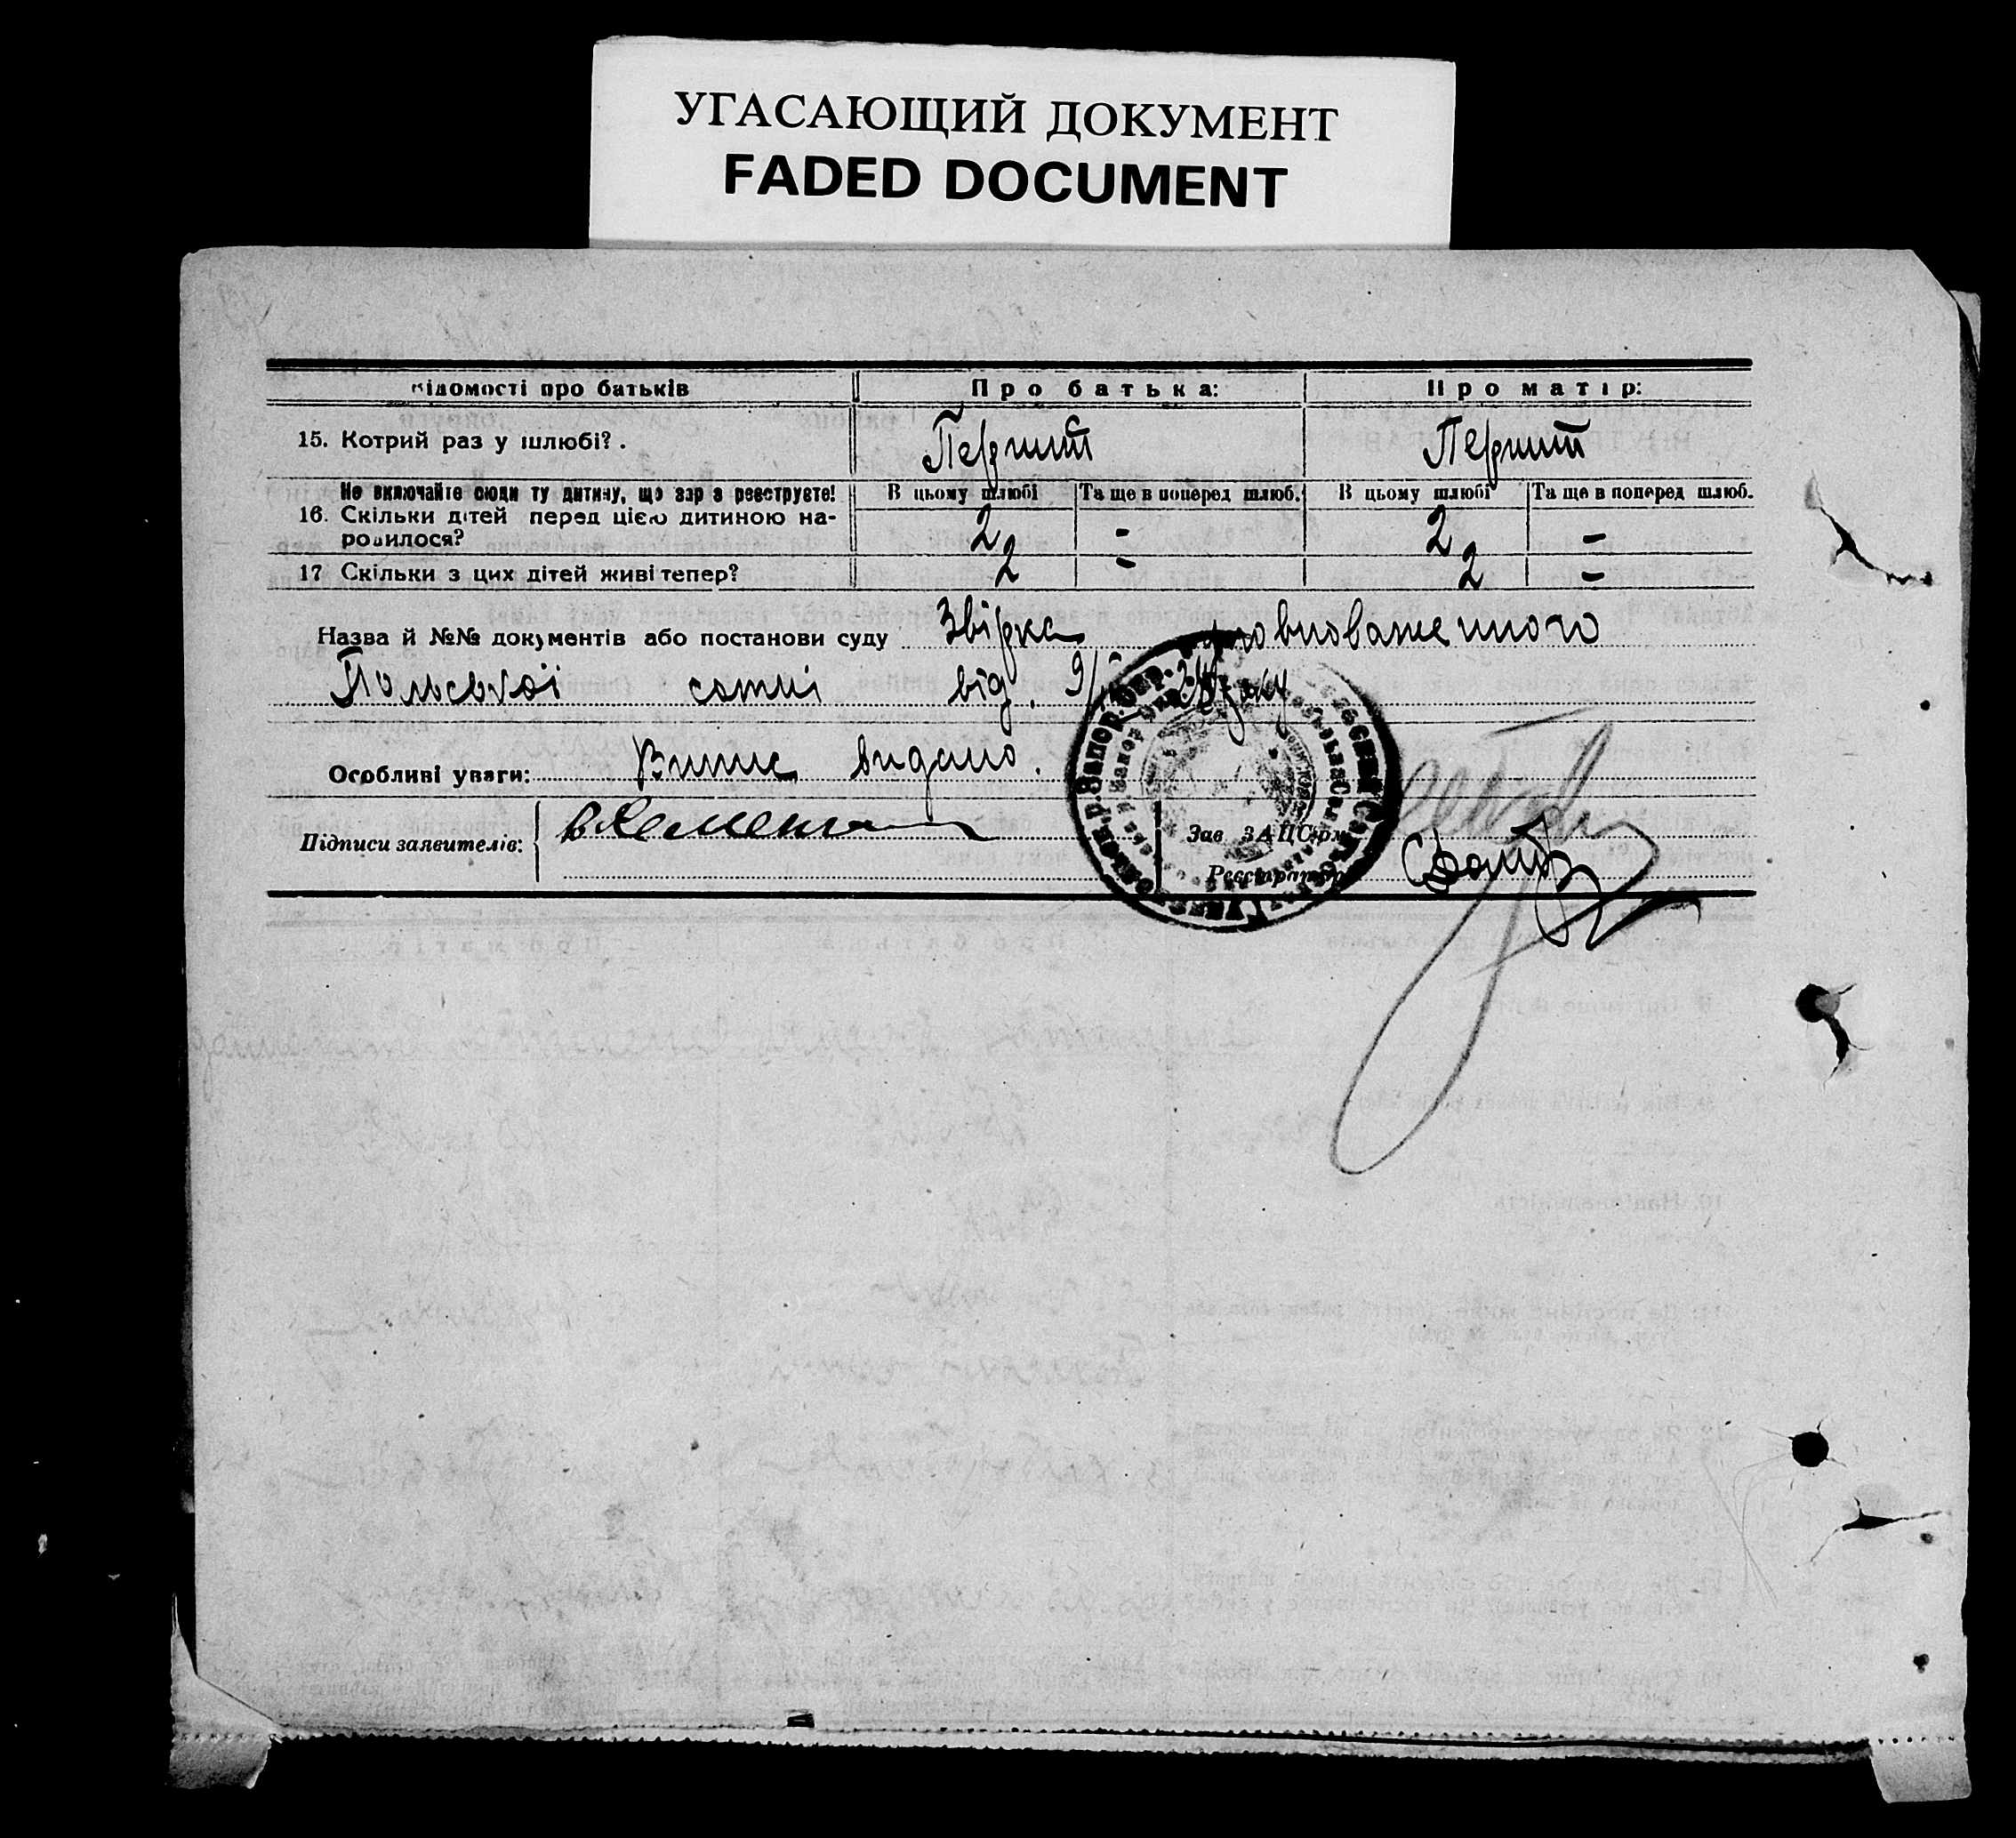 УГАСАЮЩИЙ ДОКУМЕНТ
FADED DOCUMENT
відомості про батьків Про батька: Про матір:
15. Котрий раз у шлюбі?. Перший Перший
Не включайте сюди ту дитину, що зараз реєструєте! В цьому шлюбі Та ще в поперед шлюб. В цьому шлюбі Та ще в поперед шлюб.
16. Скільки дітей перед цією дитиною на- 2 – 2 –
родилося?
17 Скільки з цих дітей живі тепер? 2 – 2 –
Назва й №№ документів або постанови суду Звірка уповноваженного
Польської сотні від 9/ року
Особливі уваги: Випис видано.
Підписи заявителів: Зав. ЗАЦСом
Реєстратор